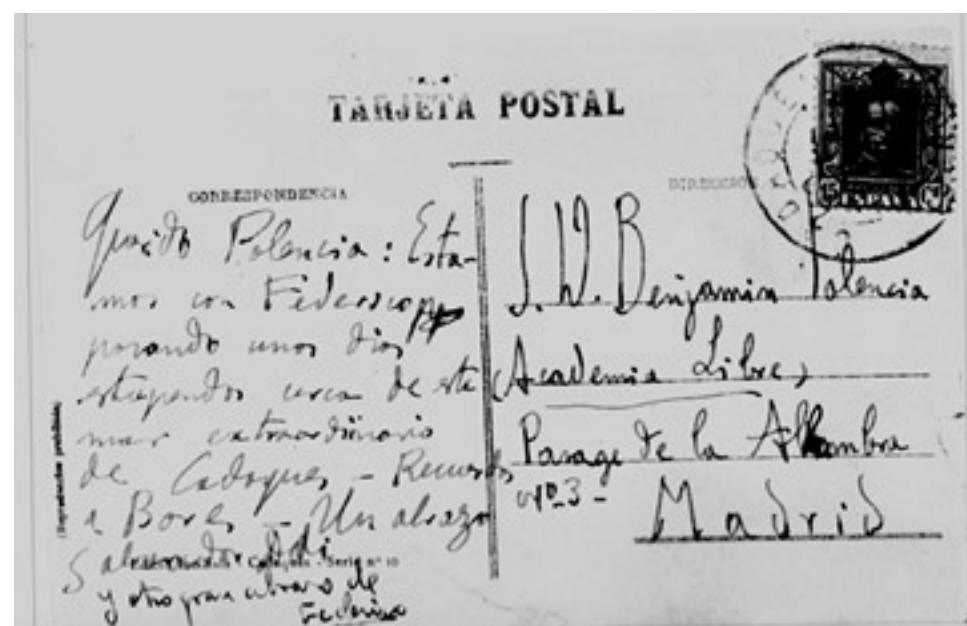 TARJETA POSTAL
CORRESPONDENCIA
DIRECCION
15 CTS
Querido Palencia: Esta-
mos con Federico
pasando unos dias
estupendos cerca de este
mar extraordinario
de Cadaques - Recuerdos
a Bores - Un abrazo
Salvador Dali
Serie nº 10
y otro gran abrazo de
Federico
S. D. Benjamin Palencia
(Academia Libre)
Pasage de la Alhambra
nº 3 -
Madrid
(Reproducción prohibida)